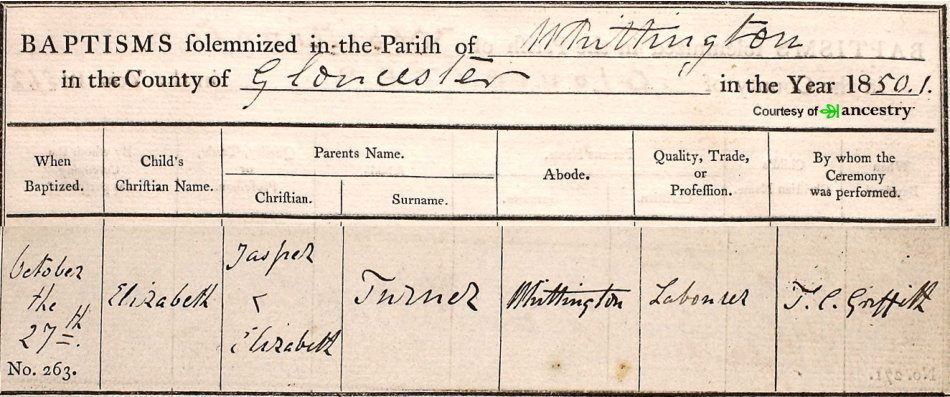 BAPTISMS solemnized in the Parish of Whittington
in the County of Gloucester in the Year 1850.1.
Courtesy of ancestry
When Baptized.
Child's Christian Name.
Parents Name.
Christian.
Surname.
Abode.
Quality, Trade, or Profession.
By whom the Ceremony was performed.
October
the
27th.
No. 263.
Elizabeth
Jasper
&
Elizabeth
Turner
Whittington
Labourer
T. C. Griffith
No. 271.